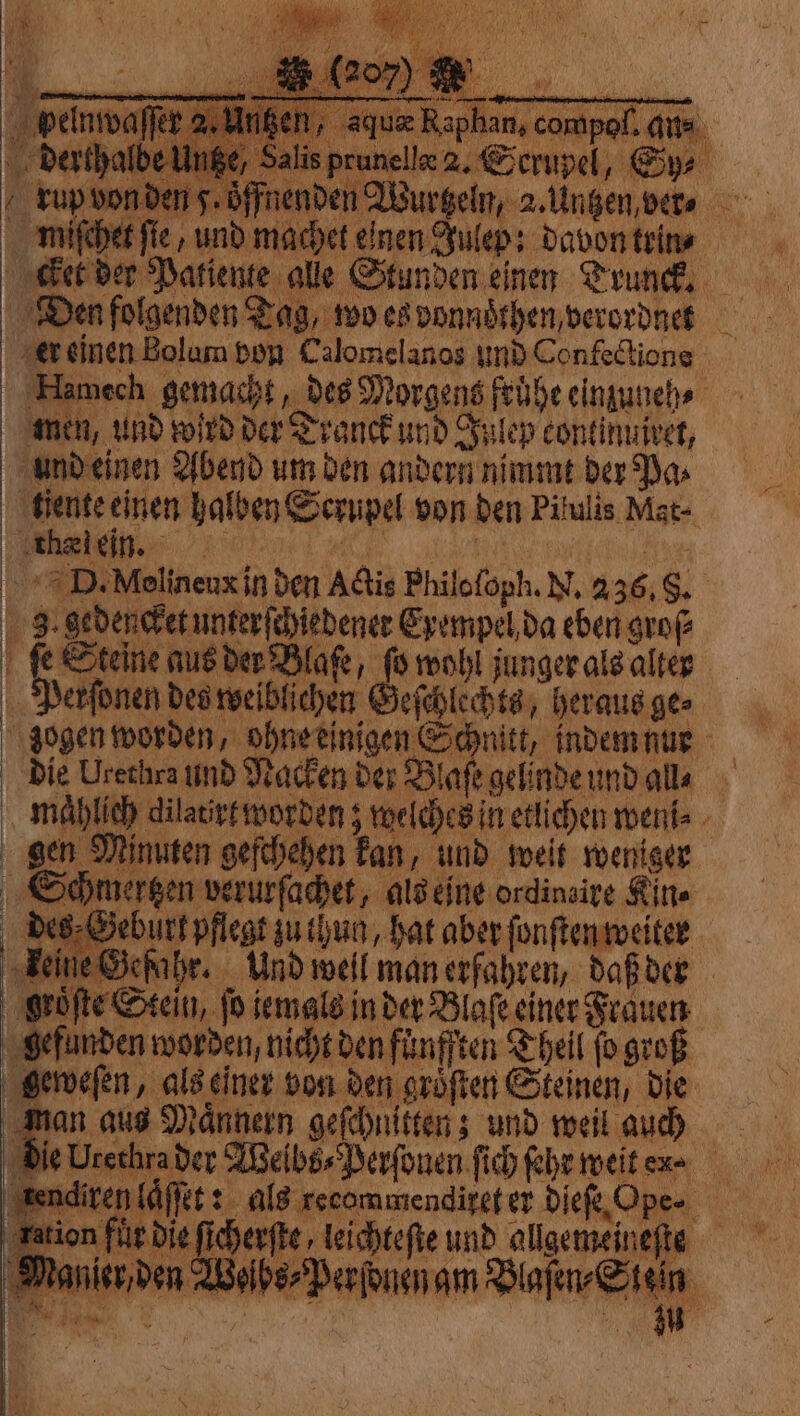 (207)
pelnwaſſer 2. Untzen, aquæ Raphan, compoſ. an⸗
derthalbe Untze, Salis prunellæ 2. Scrupel, Sy⸗
rup von den 5. oͤffnenden Wurtzeln, 2. Untzen, ver⸗
miſchet ſie, und machet einen Julep: davon trin⸗
cket der Patiente alle Stunden einen Trunck.
Den folgenden Tag, wo es vonnoͤthen, verordnet
er einen Bolum von Calomelanos und Confectione
Hamech gemacht, des Morgens fruͤhe einzuneh⸗
men, und wird der Tranck und Julep continuiret,
und einen Abend um den andern nimmt der Pa⸗
tiente einen halben Scrupel von den Pilulis Mat-
thæi ein.
D. Molineux in den Actis Philoſoph. N. 236. §.
3. gedencket unterſchiedener Exempel, da eben groſ⸗
ſe Steine aus der Blaſe, ſo wohl junger als alter
Perſonen des weiblichen Geſchlechts, heraus ge⸗
zogen worden, ohne einigen Schnitt, indem nur
die Urethra und Nacken der Blaſe gelinde und all⸗
maͤhlich dilatirt worden; welches in etlichen weni⸗
gen Minuten geſchehen kan, und weit weniger
Schmertzen verurſachet, als eine ordinaire Kin⸗
des⸗Geburt pflegt zu thun, hat aber ſonſten weiter
keine Gefahr. Und weil man erfahren, daß der
groͤſte Stein, ſo iemals in der Blaſe einer Frauen
gefunden worden, nicht den fuͤnfften Theil ſo groß
geweſen, als einer von den groͤſten Steinen, die
man aus Maͤnnern geſchnitten; und weil auch
die Urethra der Weibs⸗Perſonen ſich ſehr weit ex-
tendiren laͤſſet: als recommendiret er dieſe Ope-
ration fuͤr die ſicherſte, leichteſte und allgemeineſte
Manier, den Weibs⸗Perſonen am Blaſen⸗Stein
zu